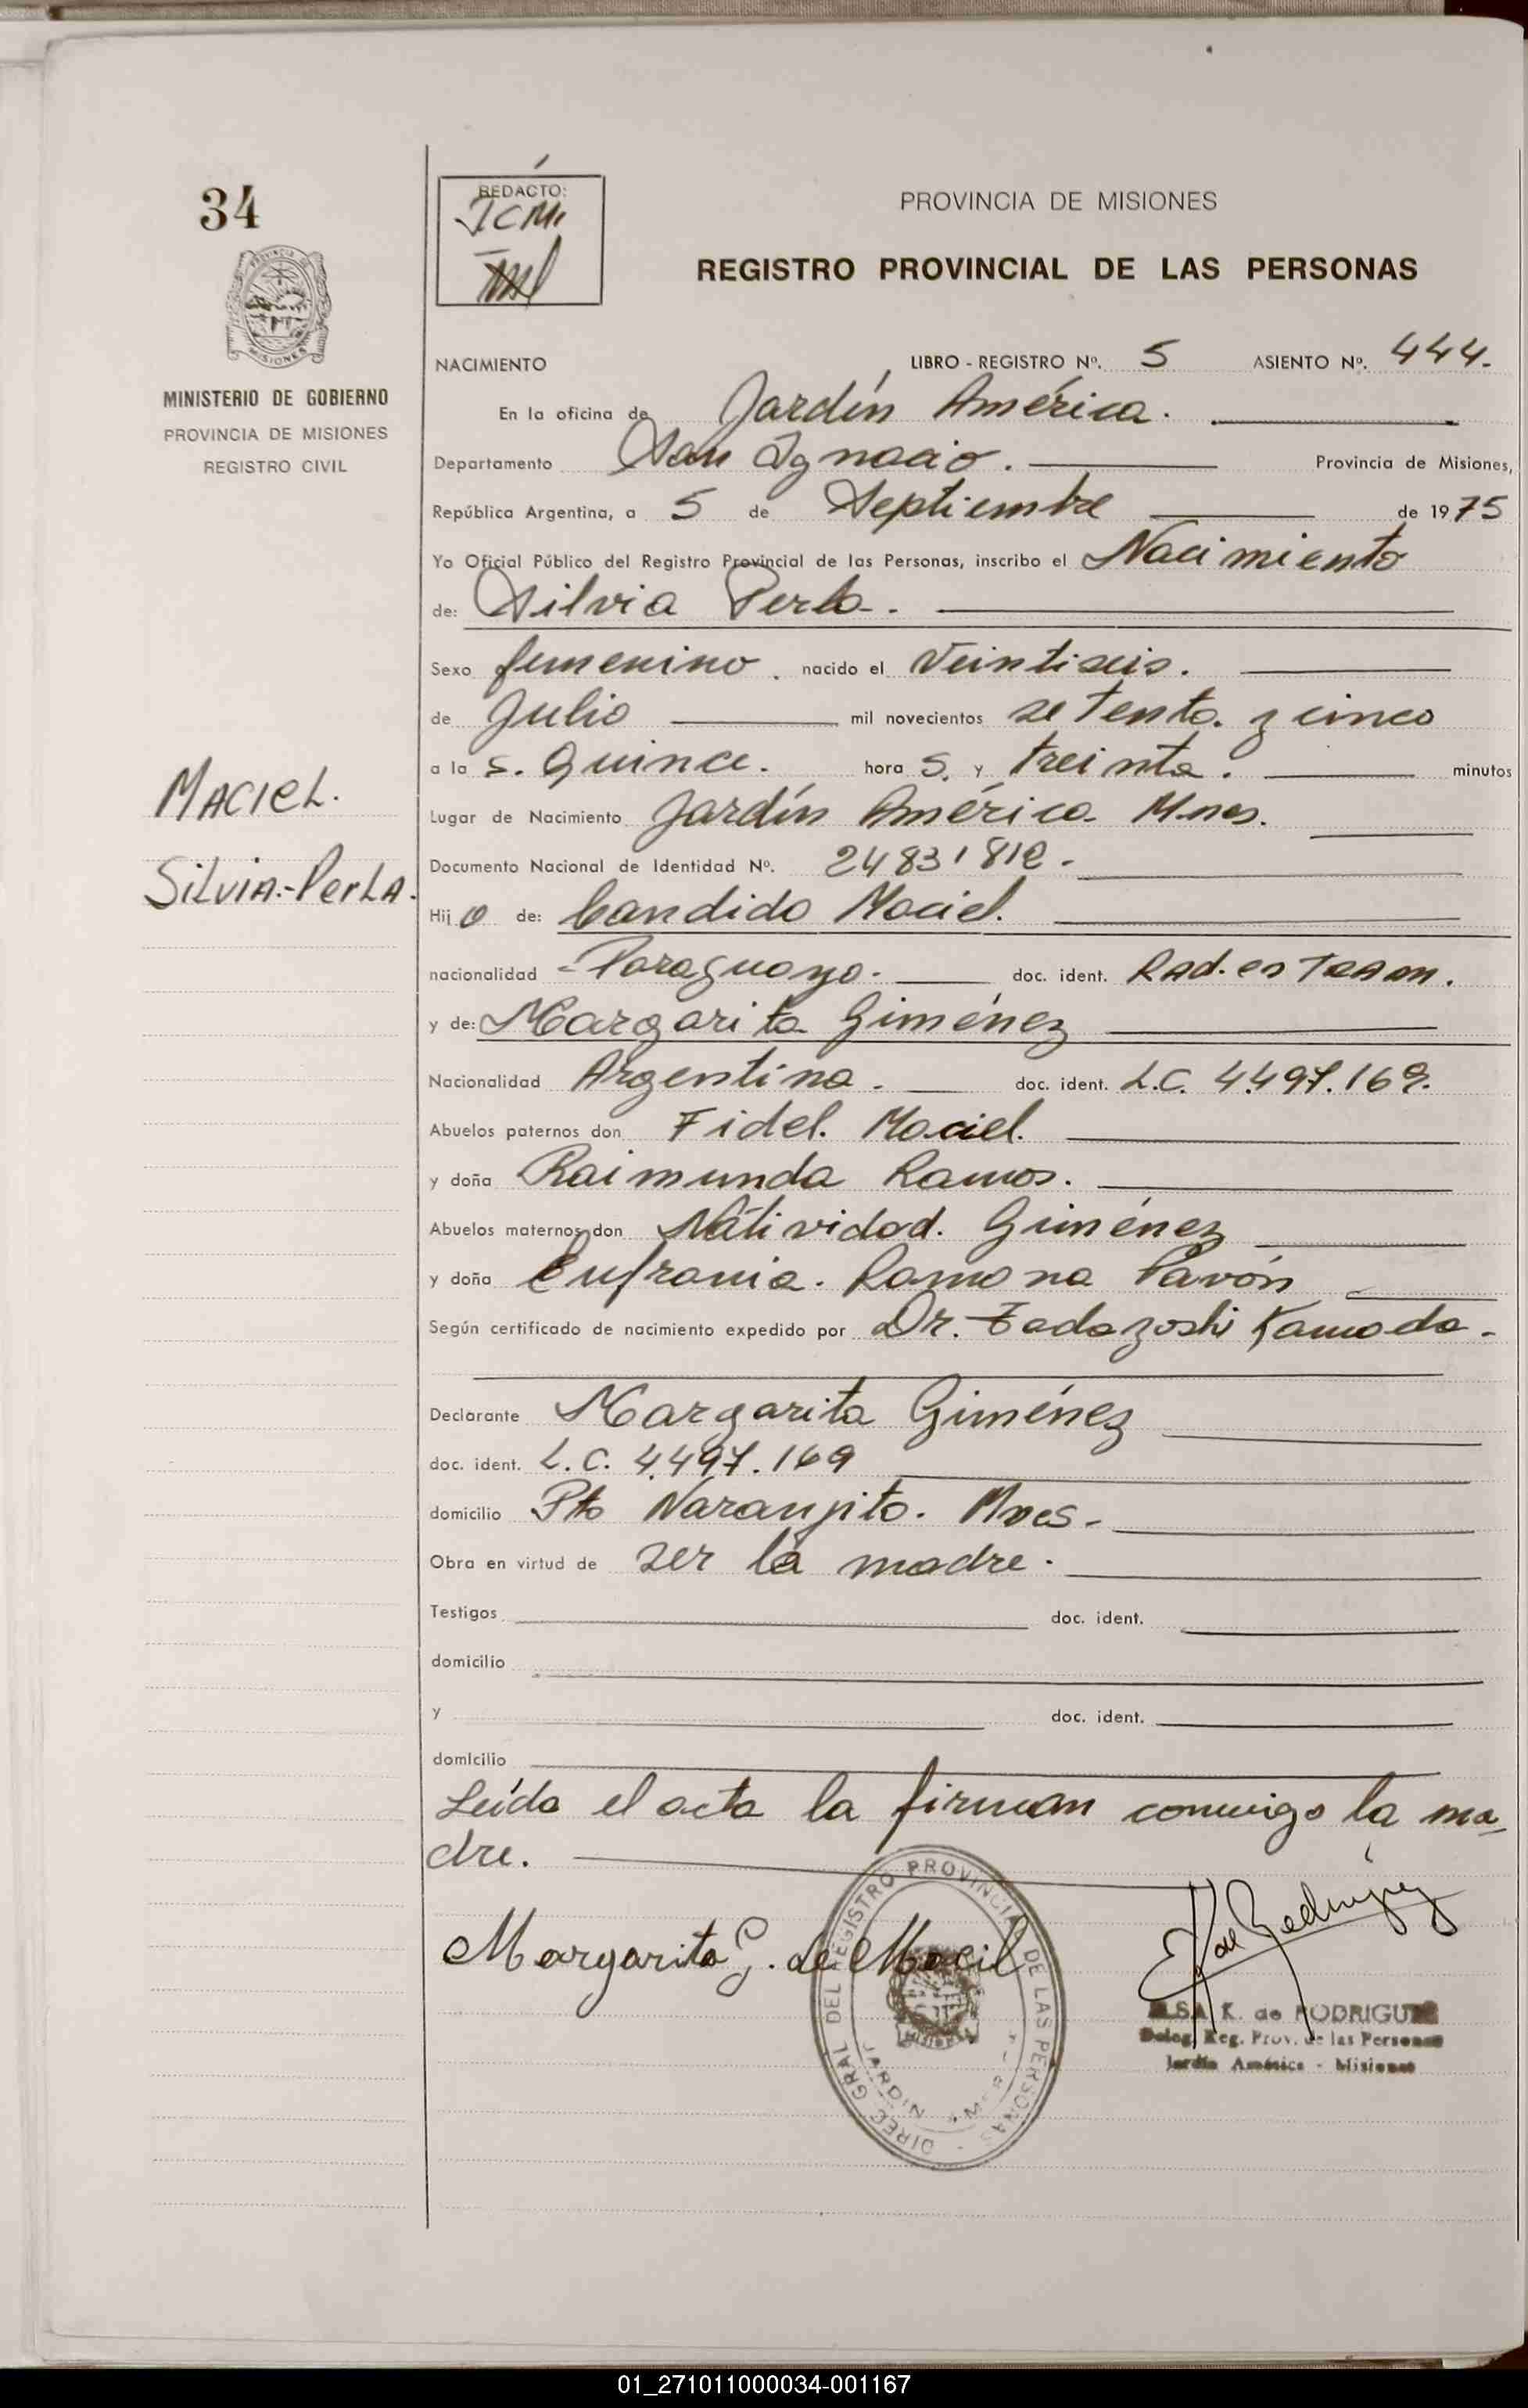 34
REDACTO:
JCM.
PROVINCIA DE MISIONES
REGISTRO PROVINCIAL DE LAS PERSONAS
MINISTERIO DE GOBIERNO
PROVINCIA DE MISIONES
REGISTRO CIVIL
NACIMIENTO LIBRO - REGISTRO Nº. 5 ASIENTO Nº. 444.-
En la oficina de Jardín América.
Departamento San Ignacio. Provincia de Misiones,
República Argentina, a 5 de Septiembre de 1975
Yo Oficial Público del Registro Provincial de las Personas, inscribo el Nacimiento
de: Silvia Perla.
Sexo femenino. nacido el Veintiseis.
de Julio mil novecientos setenta y cinco
a la s. Quince. hora s. y treinta. minutos
MACIEL.
Lugar de Nacimiento Jardín América Mnes.
SiLViA.-PerLA.
Documento Nacional de Identidad Nº. 24831812.-
Hij o de: Candido Maciel.
nacionalidad -Paraguayo.- doc. ident. Rad. en
y de: Margarita Giménez
Nacionalidad Argentina. doc. ident. L.C. 4.497.169.
Abuelos paternos don Fidel. Maciel.
y doña Raimunda Ramos.
Abuelos maternos don Natividad. Giménez
y doña Eufrania. Ramona Pavón
Según certificado de nacimiento expedido por Dr. Tadayoshi Kamada.-
Declarante Margarita Giménez
doc. ident. L.C. 4.497.169
domicilio Pto Naranjito. Mnes-
Obra en virtud de ser la madre.
Testigos doc. ident.
domicilio
y doc. ident.
domicilio
Leída el acta la firman conmigo la ma-
dre.
Margarita G. de Macil
DIREC. GRAL DEL REGISTRO PROVINCIAL DE LAS PERSONAS
MISIONES
JARDIN AMERICA
ELSA K. de RODRIGUEZ
Deleg. Reg. Prov. de las Personas
Jardín América - Misiones
01_271011000034-001167